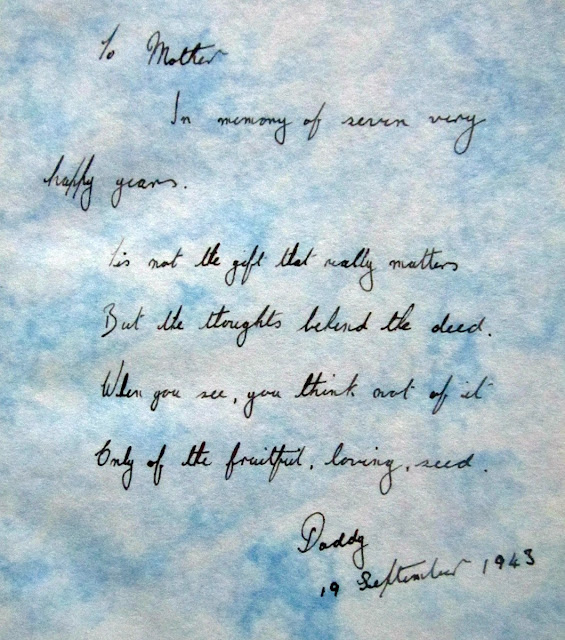 To Mother
In memory of seven very
happy years.
Tis not the gift that really matters
But the thoughts behind the deed.
When you see, you think not of it
Only of the fruitful, loving, seed.
Daddy
19 September 1943